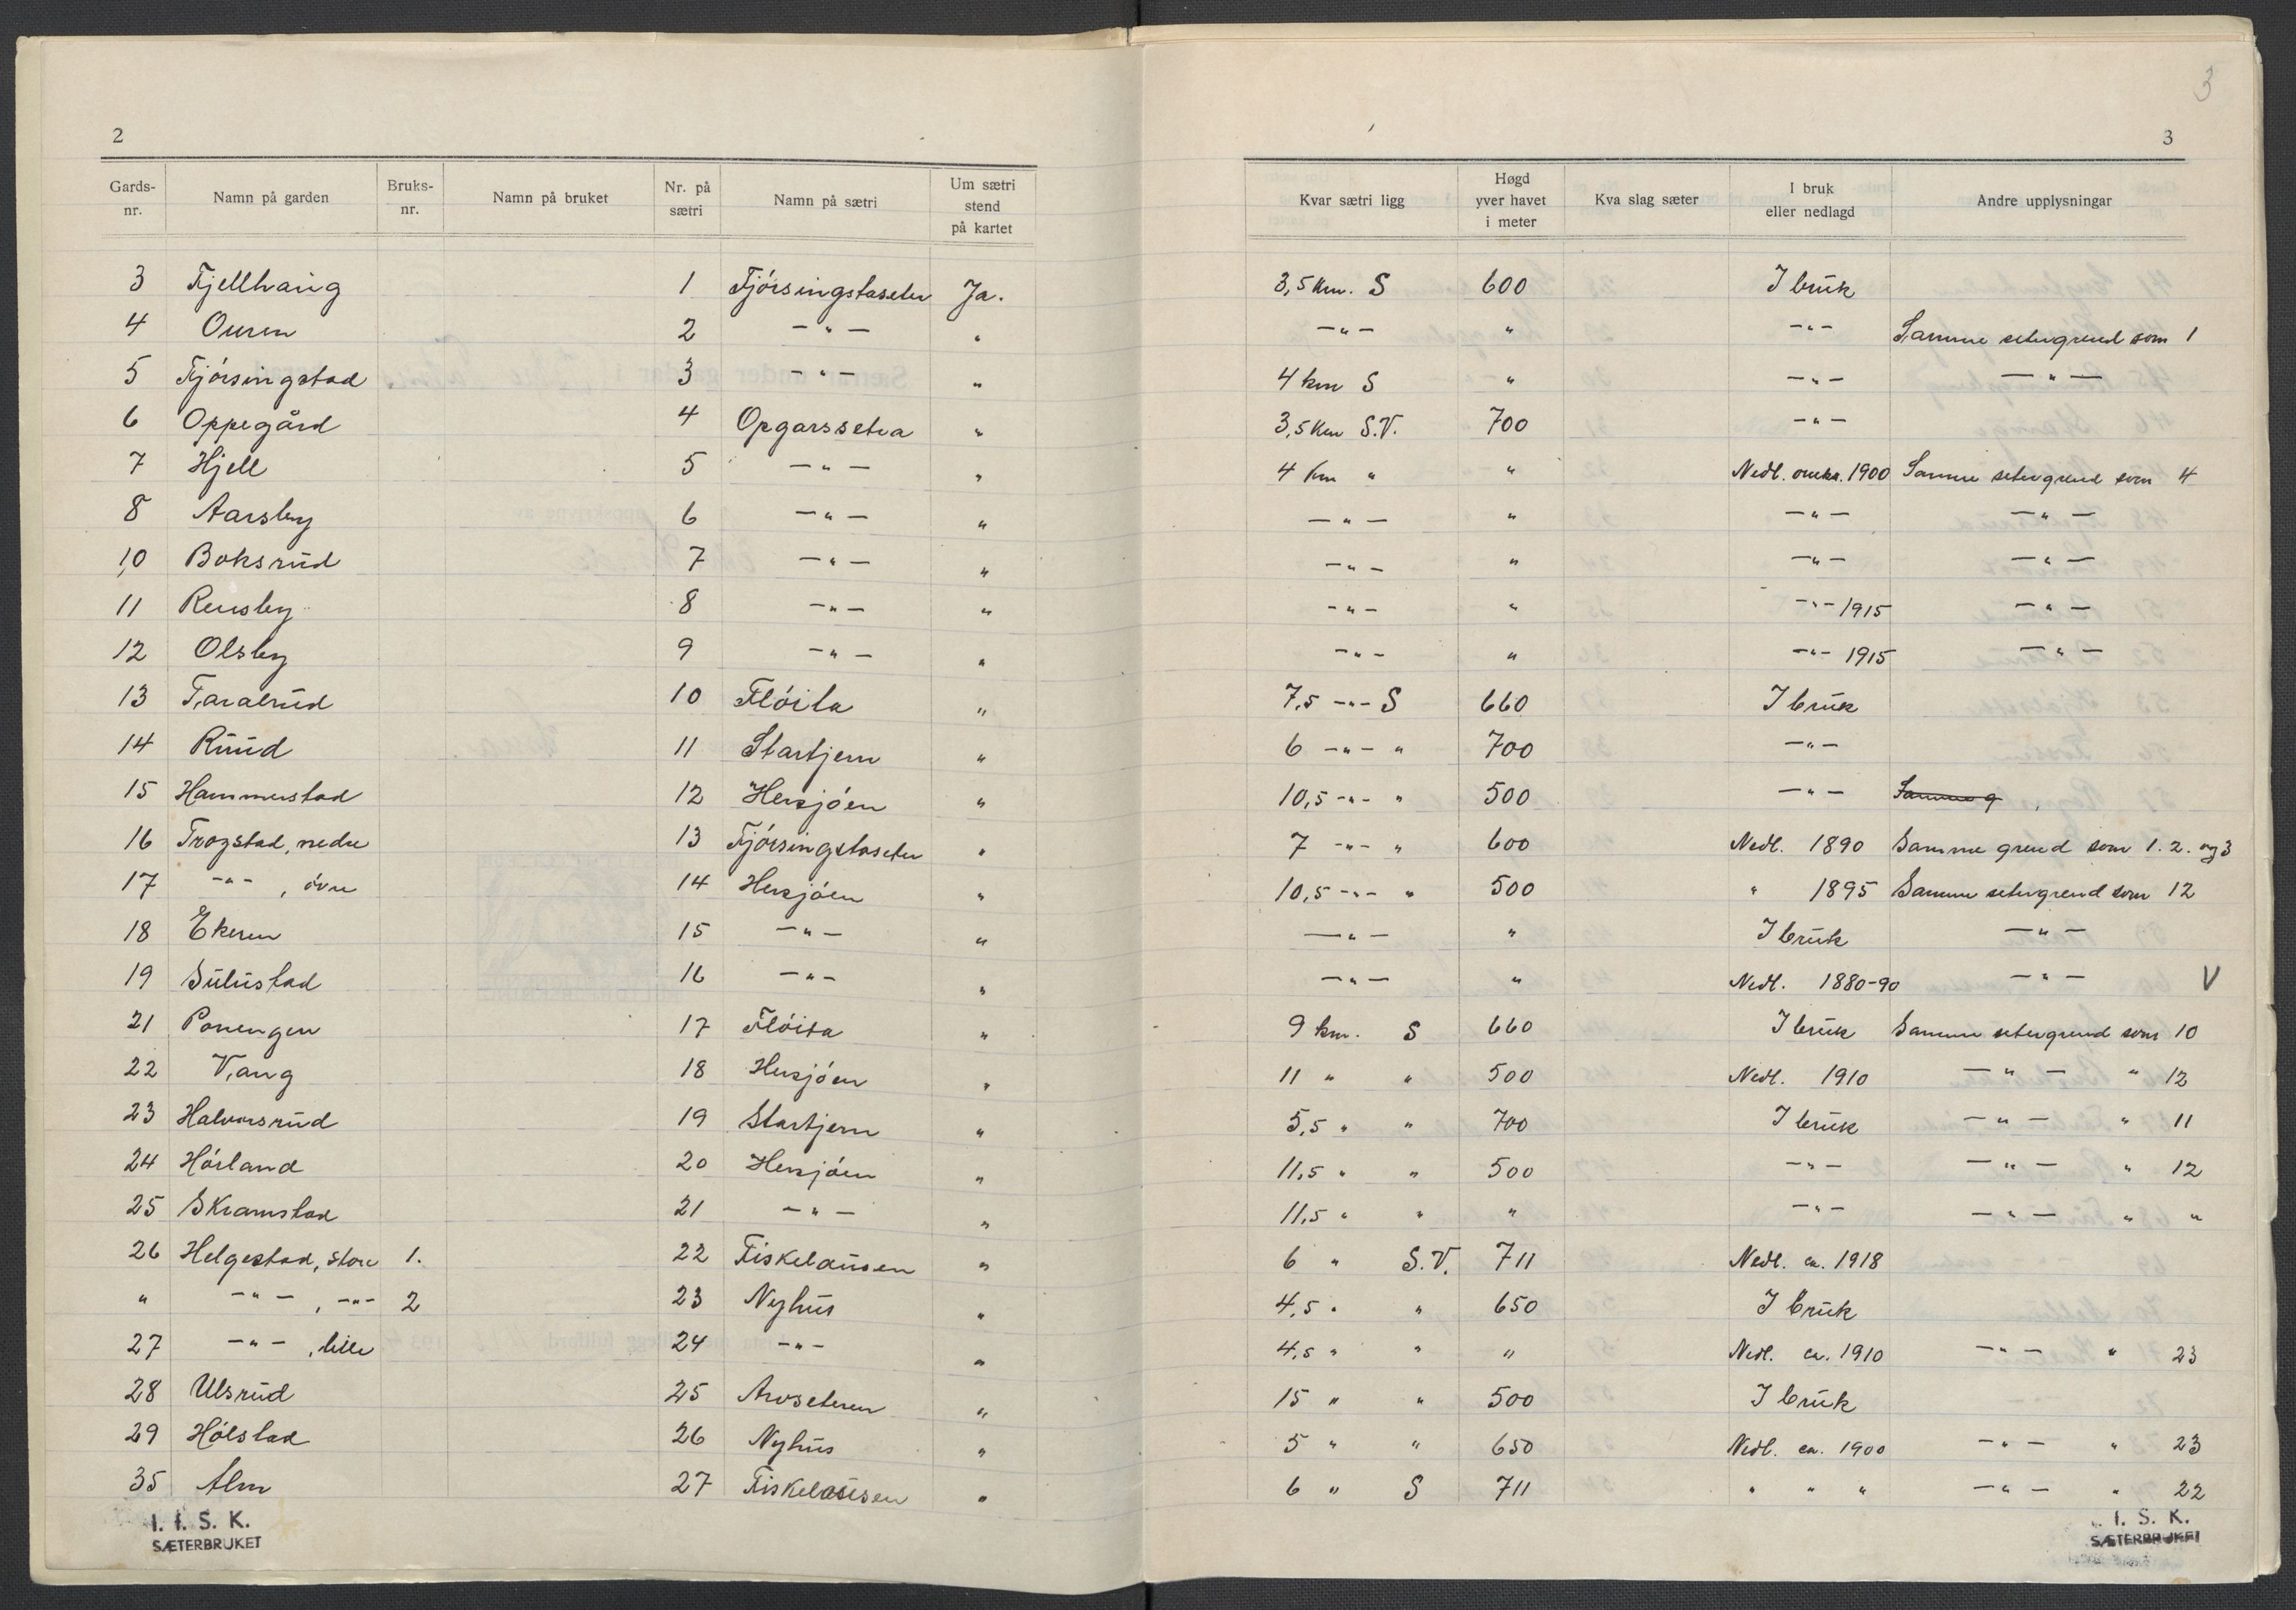 2
Gards-nr. | Namn på garden | Bruks-nr. | Namn på bruket | Nr. på sætri | Namn på sætri | Um sætri stend på kartet
3 Fjellhaug 1 Fjórsingstaseter Ja.
4 Ouren 2 —"— "
5 Fjórsingstad 3 —"— "
6 Oppegård 4 Opgarssetra "
7 Hjell 5 —"— "
8 Aarsby 6 —"— "
10 Boksrud 7 —"— "
11 Rensby 8 —"— "
12 Olsby 9 —"— "
13 Taralrud 10 Flóita "
14 Ruud 11 Startjern "
15 Hammerstad 12 Hersjóen "
16 Trogstad, nedre 13 Fjórsingstaseter "
17 —"— , óvre 14 Hersjóen "
18 Ekeren 15 —"— "
19 Sulustad 16 —"— "
21 Ponengen 17 Flóita "
22 Vang 18 Hersjóen "
23 Halvorsrud 19 Startjern "
24 Hórland 20 Hersjóen "
25 Skramstad 21 —"— "
26 Helgestad, store 1. 22 Fiskelausen "
" —"— , —"— 2 23 Nyhus "
27 —"— , lille 24 —"— "
28 Ulsrud 25 Arvseteren "
29 Hólstad 26 Nyhus "
35 Alm 27 Fiskelausen "
I. I. S. K.
SÆTERBRUKET
3
3
Kvar sætri ligg | Høgd yver havet i meter | Kva slag sæter | I bruk eller nedlagd | Andre upplysningar
3,5 km. S 600 I bruk
—"— " —"— Samme setergrend som 1
4 km S " —"— —"—
3,5 km S.V. 700 —"—
4 km " " Nedl. omkr. 1900 Samme setergrend som 4
—"— " —"— —"—
—"— " —"— —"—
—"— " —"— 1915 —"—
—"— " —"— 1915 —"—
7,5 —"— S 660 I bruk
6 —"— " 700 —"—
10,5 —"— " 500 —"— Samme g
7 —"— " 600 Nedl. 1890 Samme grend som 1. 2. og 3
10,5 —"— " 500 " 1895 Samme setergrend som 12
—"— " I bruk —"—
—"— " Nedl. 1880-90 —"— V
9 km. S 660 I bruk Samme setergrend som 10
11 " " 500 Nedl. 1910 —"— " 12
5,5 " " 700 I bruk —"— " 11
11,5 " " 500 —"— —"— " 12
11,5 " " " —"— —"— " "
6 " S.V. 711 Nedl. ca. 1918
4,5 " " 650 I bruk
4,5 " " " Nedl. ca. 1910 —"— " 23
15 " " 500 I bruk
5 " " 650 Nedl. ca. 1900 —"— " 23
6 " S 711 " " " —"— " 22
I. S. K.
SÆTERBRUKET